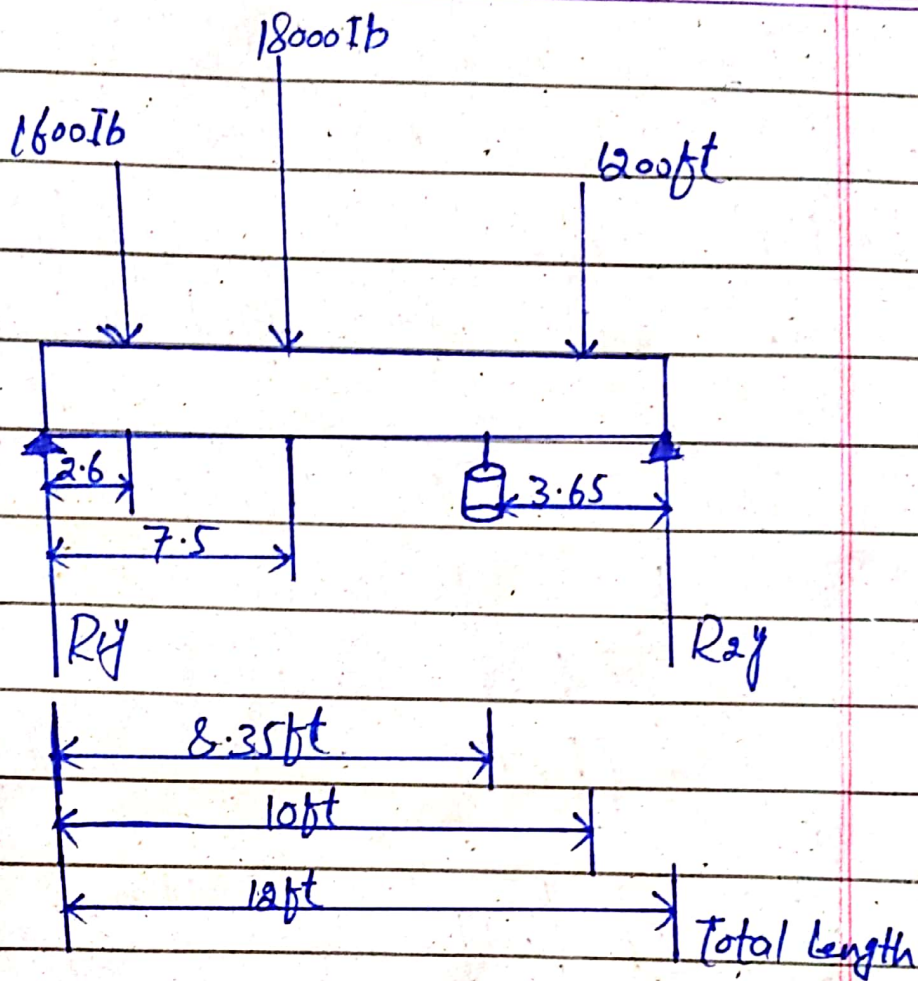 18000Ib
1600Ib
1200ft
2.6
3.65
7.5
R1y
R2y
8.35ft
10ft
12ft
Total Length